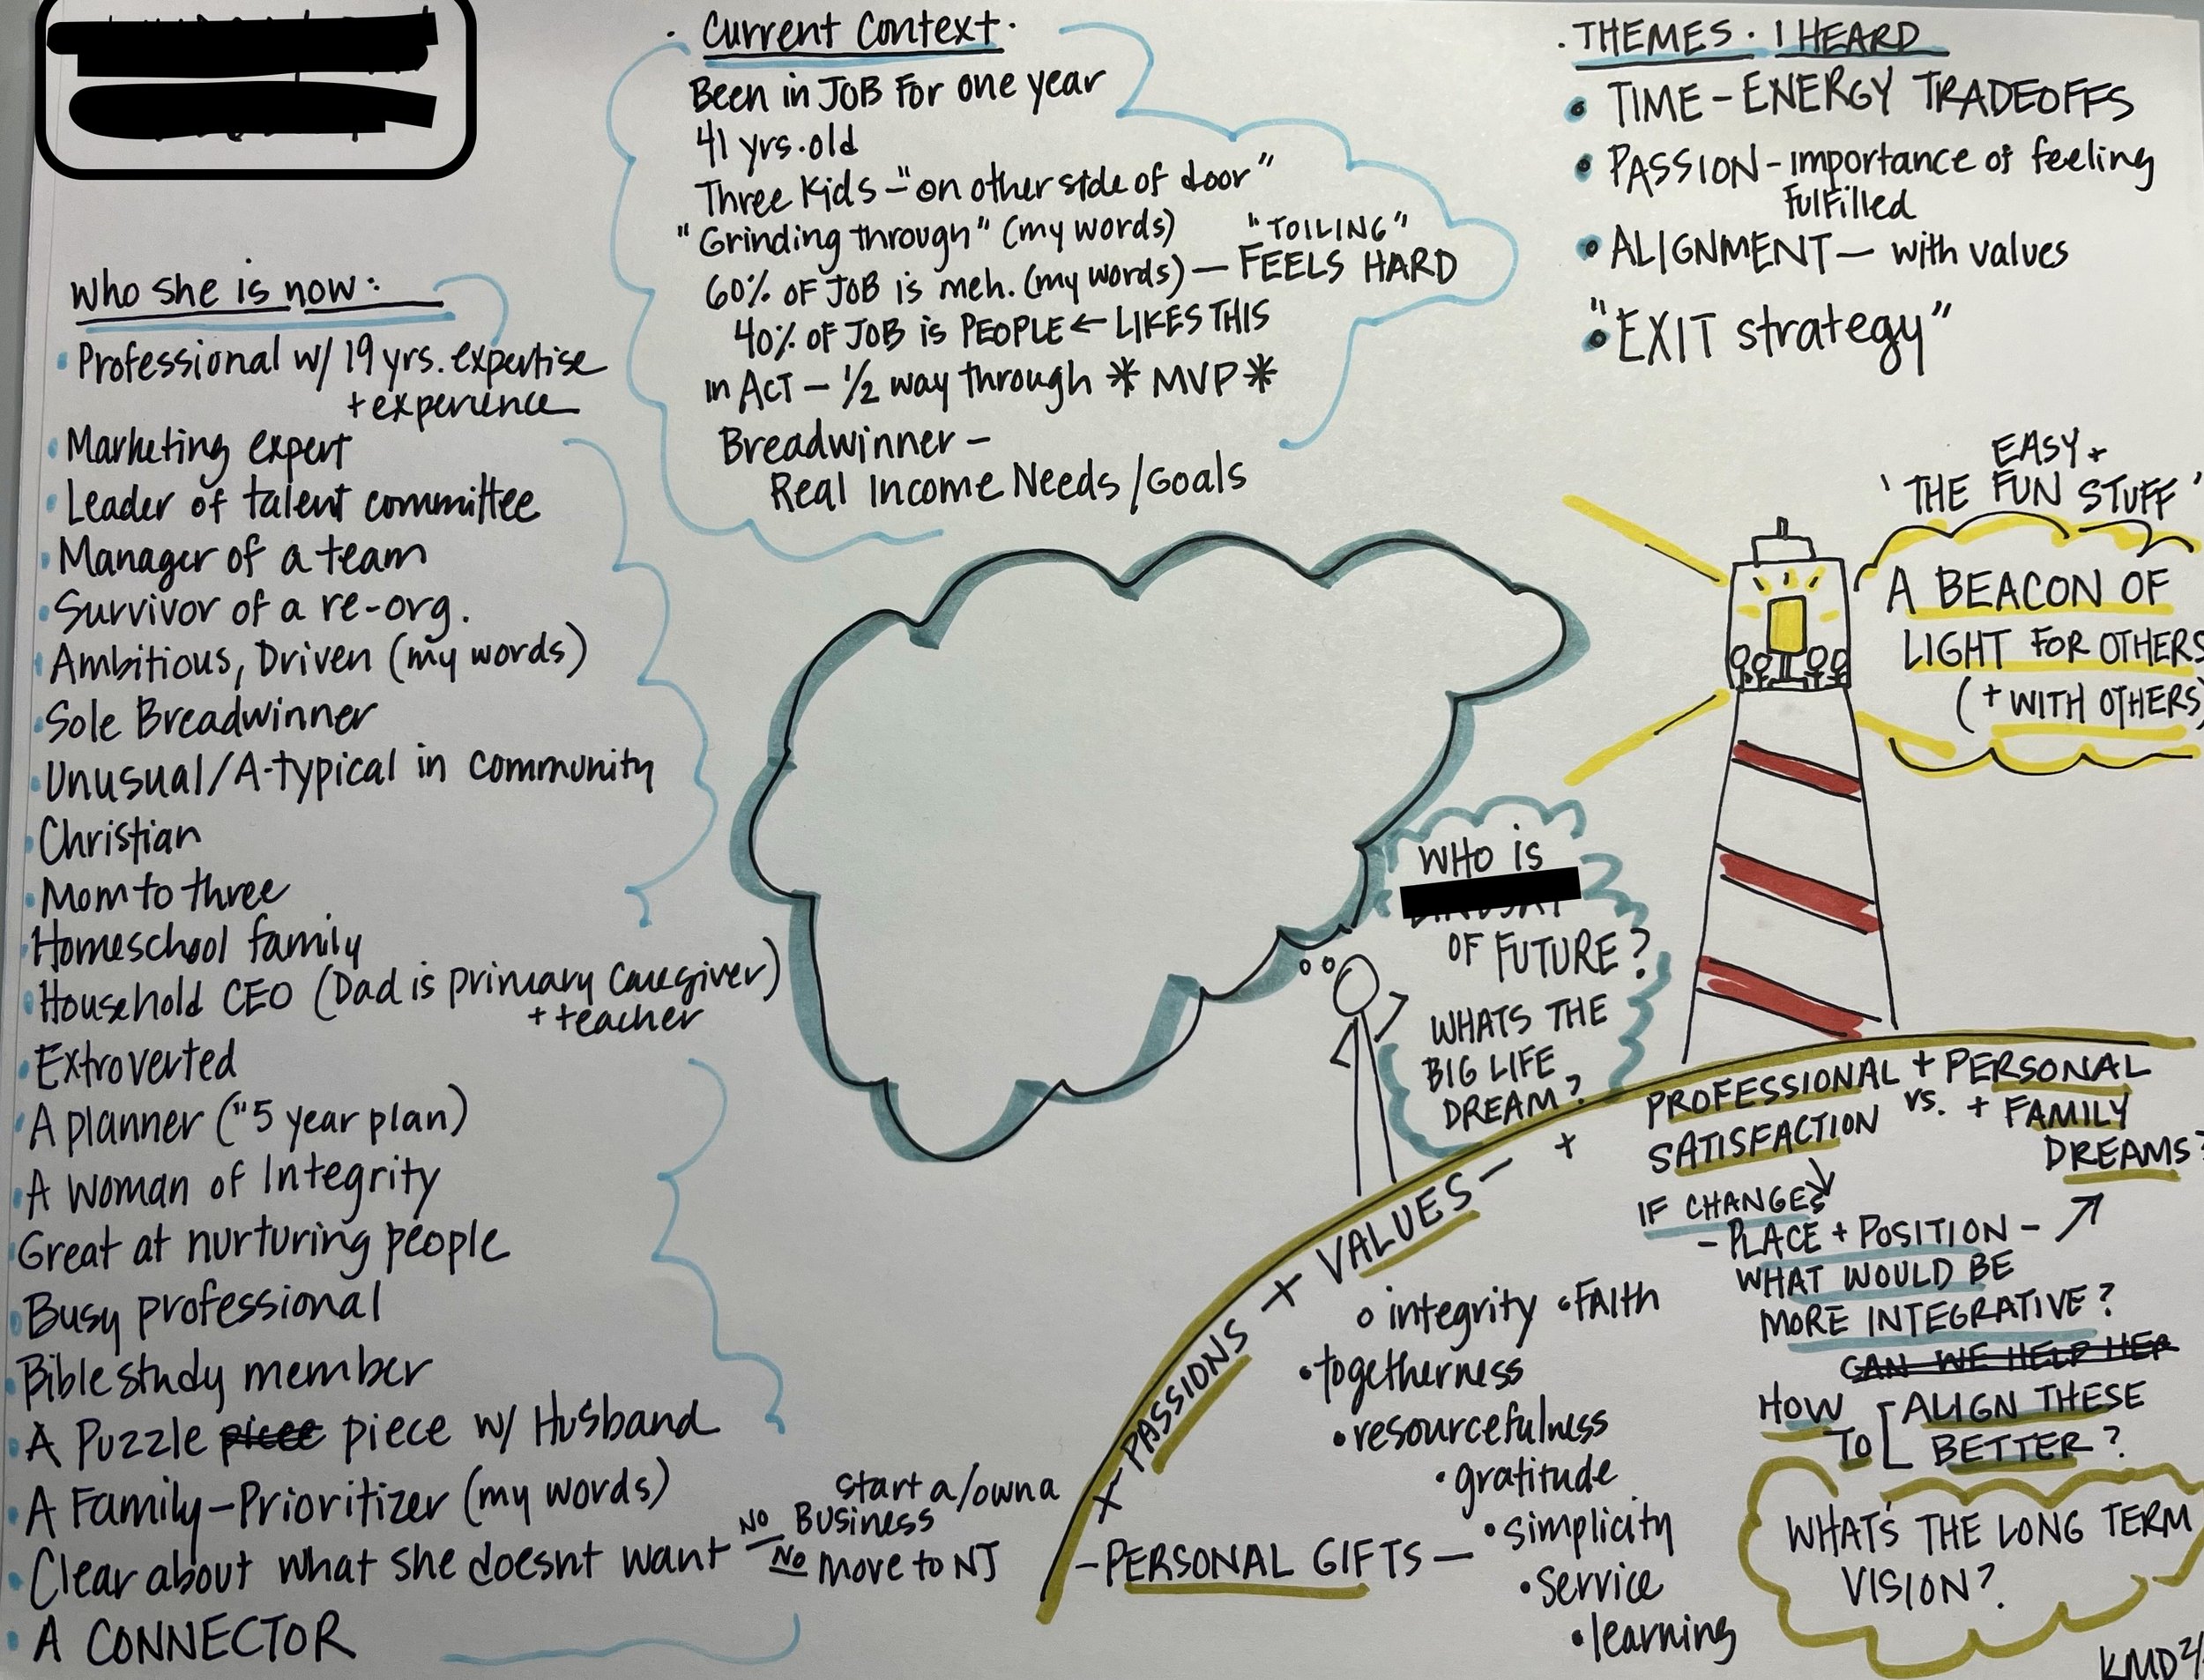 Who she is now:
• Professional w/ 19 yrs. expertise
+ experience
• Marketing expert
• Leader of talent committee
• Manager of a team
• Survivor of a re-org.
• Ambitious, Driven (my words)
• Sole Breadwinner
• Unusual/A-typical in community
• Christian
• Mom to three
• Homeschool family
• Household CEO (Dad is primary caregiver)
+ teacher
• Extroverted
• A planner ("5 year plan)
• A Woman of Integrity
• Great at nurturing people
• Busy professional
• Bible study member
• A Puzzle piece piece w/ Husband
• A Family-Prioritizer (my words)
• Clear about what she doesnt want
NO Start a/own a
Business
NO move to NJ
• A CONNECTOR
• Current Context •
Been in JOB For one year
41 yrs. old
Three Kids - "on other side of door"
"Grinding through" (my words) "TOILING"
60% OF JOB is meh. (my words) — FEELS HARD
40% OF JOB is PEOPLE ← LIKES THIS
in ACT - 1/2 way through * MVP *
Breadwinner -
Real Income Needs/Goals
. THEMES • I HEARD
• TIME - ENERGY TRADEOFFS
• PASSION - importance of feeling
fulfilled
• ALIGNMENT — with values
• "EXIT strategy"
EASY +
'THE FUN STUFF'
A BEACON OF
LIGHT FOR OTHERS
(+ WITH OTHERS)
WHO is
OF FUTURE?
WHATS THE
BIG LIFE
DREAM?
x - PASSIONS + VALUES - +
PROFESSIONAL + PERSONAL
SATISFACTION vs. + FAMILY
DREAMS?
IF CHANGES
- PLACE + POSITION -
WHAT WOULD BE
MORE INTEGRATIVE?
CAN WE HELP HER
HOW TO [ALIGN THESE
BETTER?
- PERSONAL GIFTS —
• integrity • FAITH
• togetherness
• resourcefulness
• gratitude
• simplicity
• service
• learning
WHAT'S THE LONG TERM
VISION?
KMD 2/